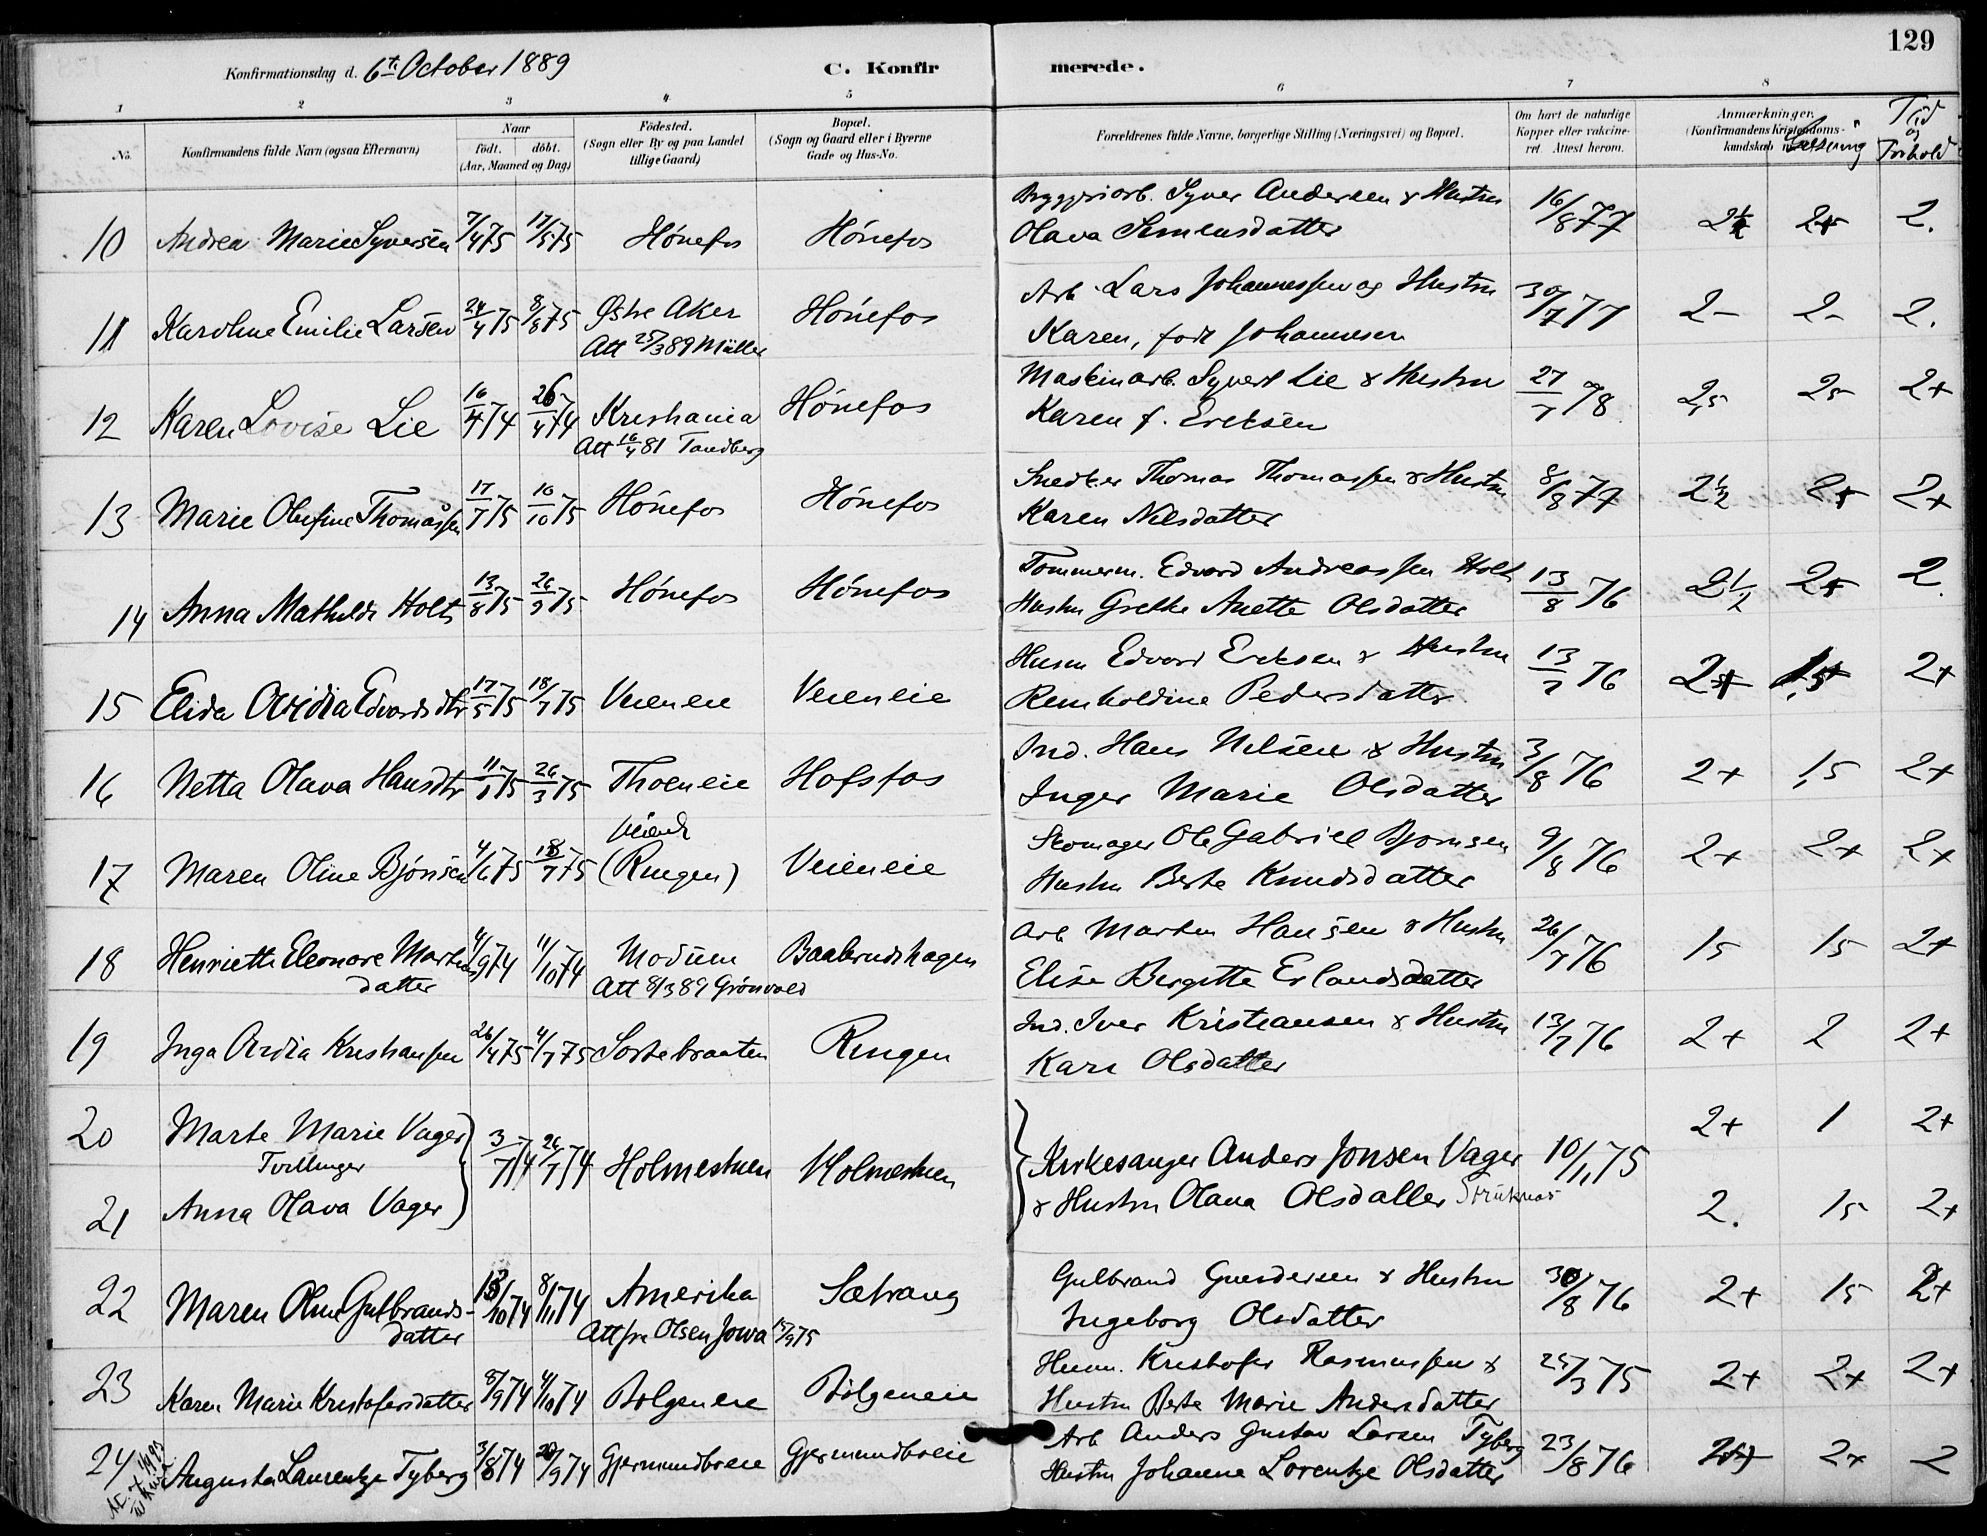 129
Konfirmationsdag d. 6te October 1889
C. Konfirmerede.
1 2 3 4 5 6 7 8
No.
Konfirmandens fulde Navn (ogsaa Efternavn)
Naar
födt. döbt.
(Aar, Maaned og Dag)
Födested.
(Sogn eller By og paa Landet
tillige Gaard)
Bopæl.
(Sogn og Gaard eller i Byerne
Gade og Hus-No.
Forældrenes fulde Navne, borgerlige Stilling (Næringsvei) og Bopæl.
Om havt de naturlige
Kopper eller vakcine-
ret. Attest herom.
Anmærkninger.
(Konfirmandens Kristendoms-
kundskab
Flid
og
Forhold
10 Andrea Marie Syversen 7/4 75 17/5 75 Hönefos Hönefos
Byggeriarb. Syver Andersen & Hustru
Olava Simensdatter 16/8 77 2 1/2 2+ 2.
11 Karoline Emilie Larsen 24/4 75 8/8 75 Østre Aker Hönefos
Att 25/3 89 Müller
Arb. Lars Johannessen og Hustru
Karen, født Johannesen 30/7 77 2- 2- 2.
12 Karen Lovise Lie 16/4 74 26/4 74 Kristiania Hönefos
Att 16/4 81 Tandberg
Maskinarb. Syvert Lie & Hustru
Karen f. Ericksen 27/7 78 2,5 25 2+
13 Marie Olufine Thomassen 17/7 75 10/10 75 Hönefos Hönefos
Snedker Thomas Thomassen & Hustru
Karen Nilsdatter 8/8 77 2 1/2 2+ 2+
14 Anna Mathilde Holt 13/8 75 26/9 75 Hönefos Hönefos
Tømmerm. Edvard Andreassen Holt
Hustru Grethe Anette Olsdatter 13/8 76 2 1/2 2+ 2.
15 Elida Ovidia Edvardsdtr 17/5 75 18/7 75 Veieneie Veieneie
Husm Edvard Ericksen & Hustru
Reinholdine Pedersdatter 13/7 76 2+ 1,5 2+
16 Netta Olava Hansdtr 11/1 75 26/3 75 Thoeneie Hofsfos
Ind. Hans Nilsen & Hustru
Inger Marie Olsdatter 3/8 76 2+ 1,5 2+
17 Maren Oline Bjönsen 4/6 75 18/7 75 (Ringen) Veieneie
Skomager Ole Gabriel Bjørnsen
Hustru Berte Knudsdatter 9/8 76 2+ 2+ 2+
18 Henriette Eleonore Martins 4/9 74 11/10 74 Modum Baabrudshagen
datter Att 8/3 89 Grönvold
Arb Martin Hansen & Hustru
Elise Birgitte Erlandsdatter 26/7 76 15 15 2+
19 Inga Ovidia Kristiansen 26/4 75 4/7 75 Sortebraaten Ringen
Ind. Iver Kristiansen & Hustru
Kari Olsdatter 13/7 76 2+ 2 2+
20 Marte Marie Vager 2+ 1 2+
Tvillinger 3/7 74 26/7 74 Holmestuen Holmestuen
Kirkesanger Anders Jonsen Vager 10/11 75
21 Anna Olava Vager
& Hustru Olava Olsdatter 2. 15 2+
22 Maren Oline Gulbrands- 13/10 74 8/11 74 Amerika Sætrang
datter Att fra Olsen Jowa 15/9 75
Gulbrand Gundersen & Hustru
Ingeborg Olsdatter 30/8 76 2+ 15 2+
23 Karen Marie Kristofersdatter 8/9 74 4/10 74 Bolgeneie Bölgeneie
Husm. Kristofer Rasmussen &
Hustru Berte Marie Andersdatter 25/3 75 2+ 2+ 2+
24 Augusta Laurentze Tyberg 3/8 74 20/9 74 Gjermundboeie Gjermundboeie
Arb Anders Gustav Larsen Tyberg
Hustru Johanne Lorentze Olsdatter 23/8 76 2+ 2